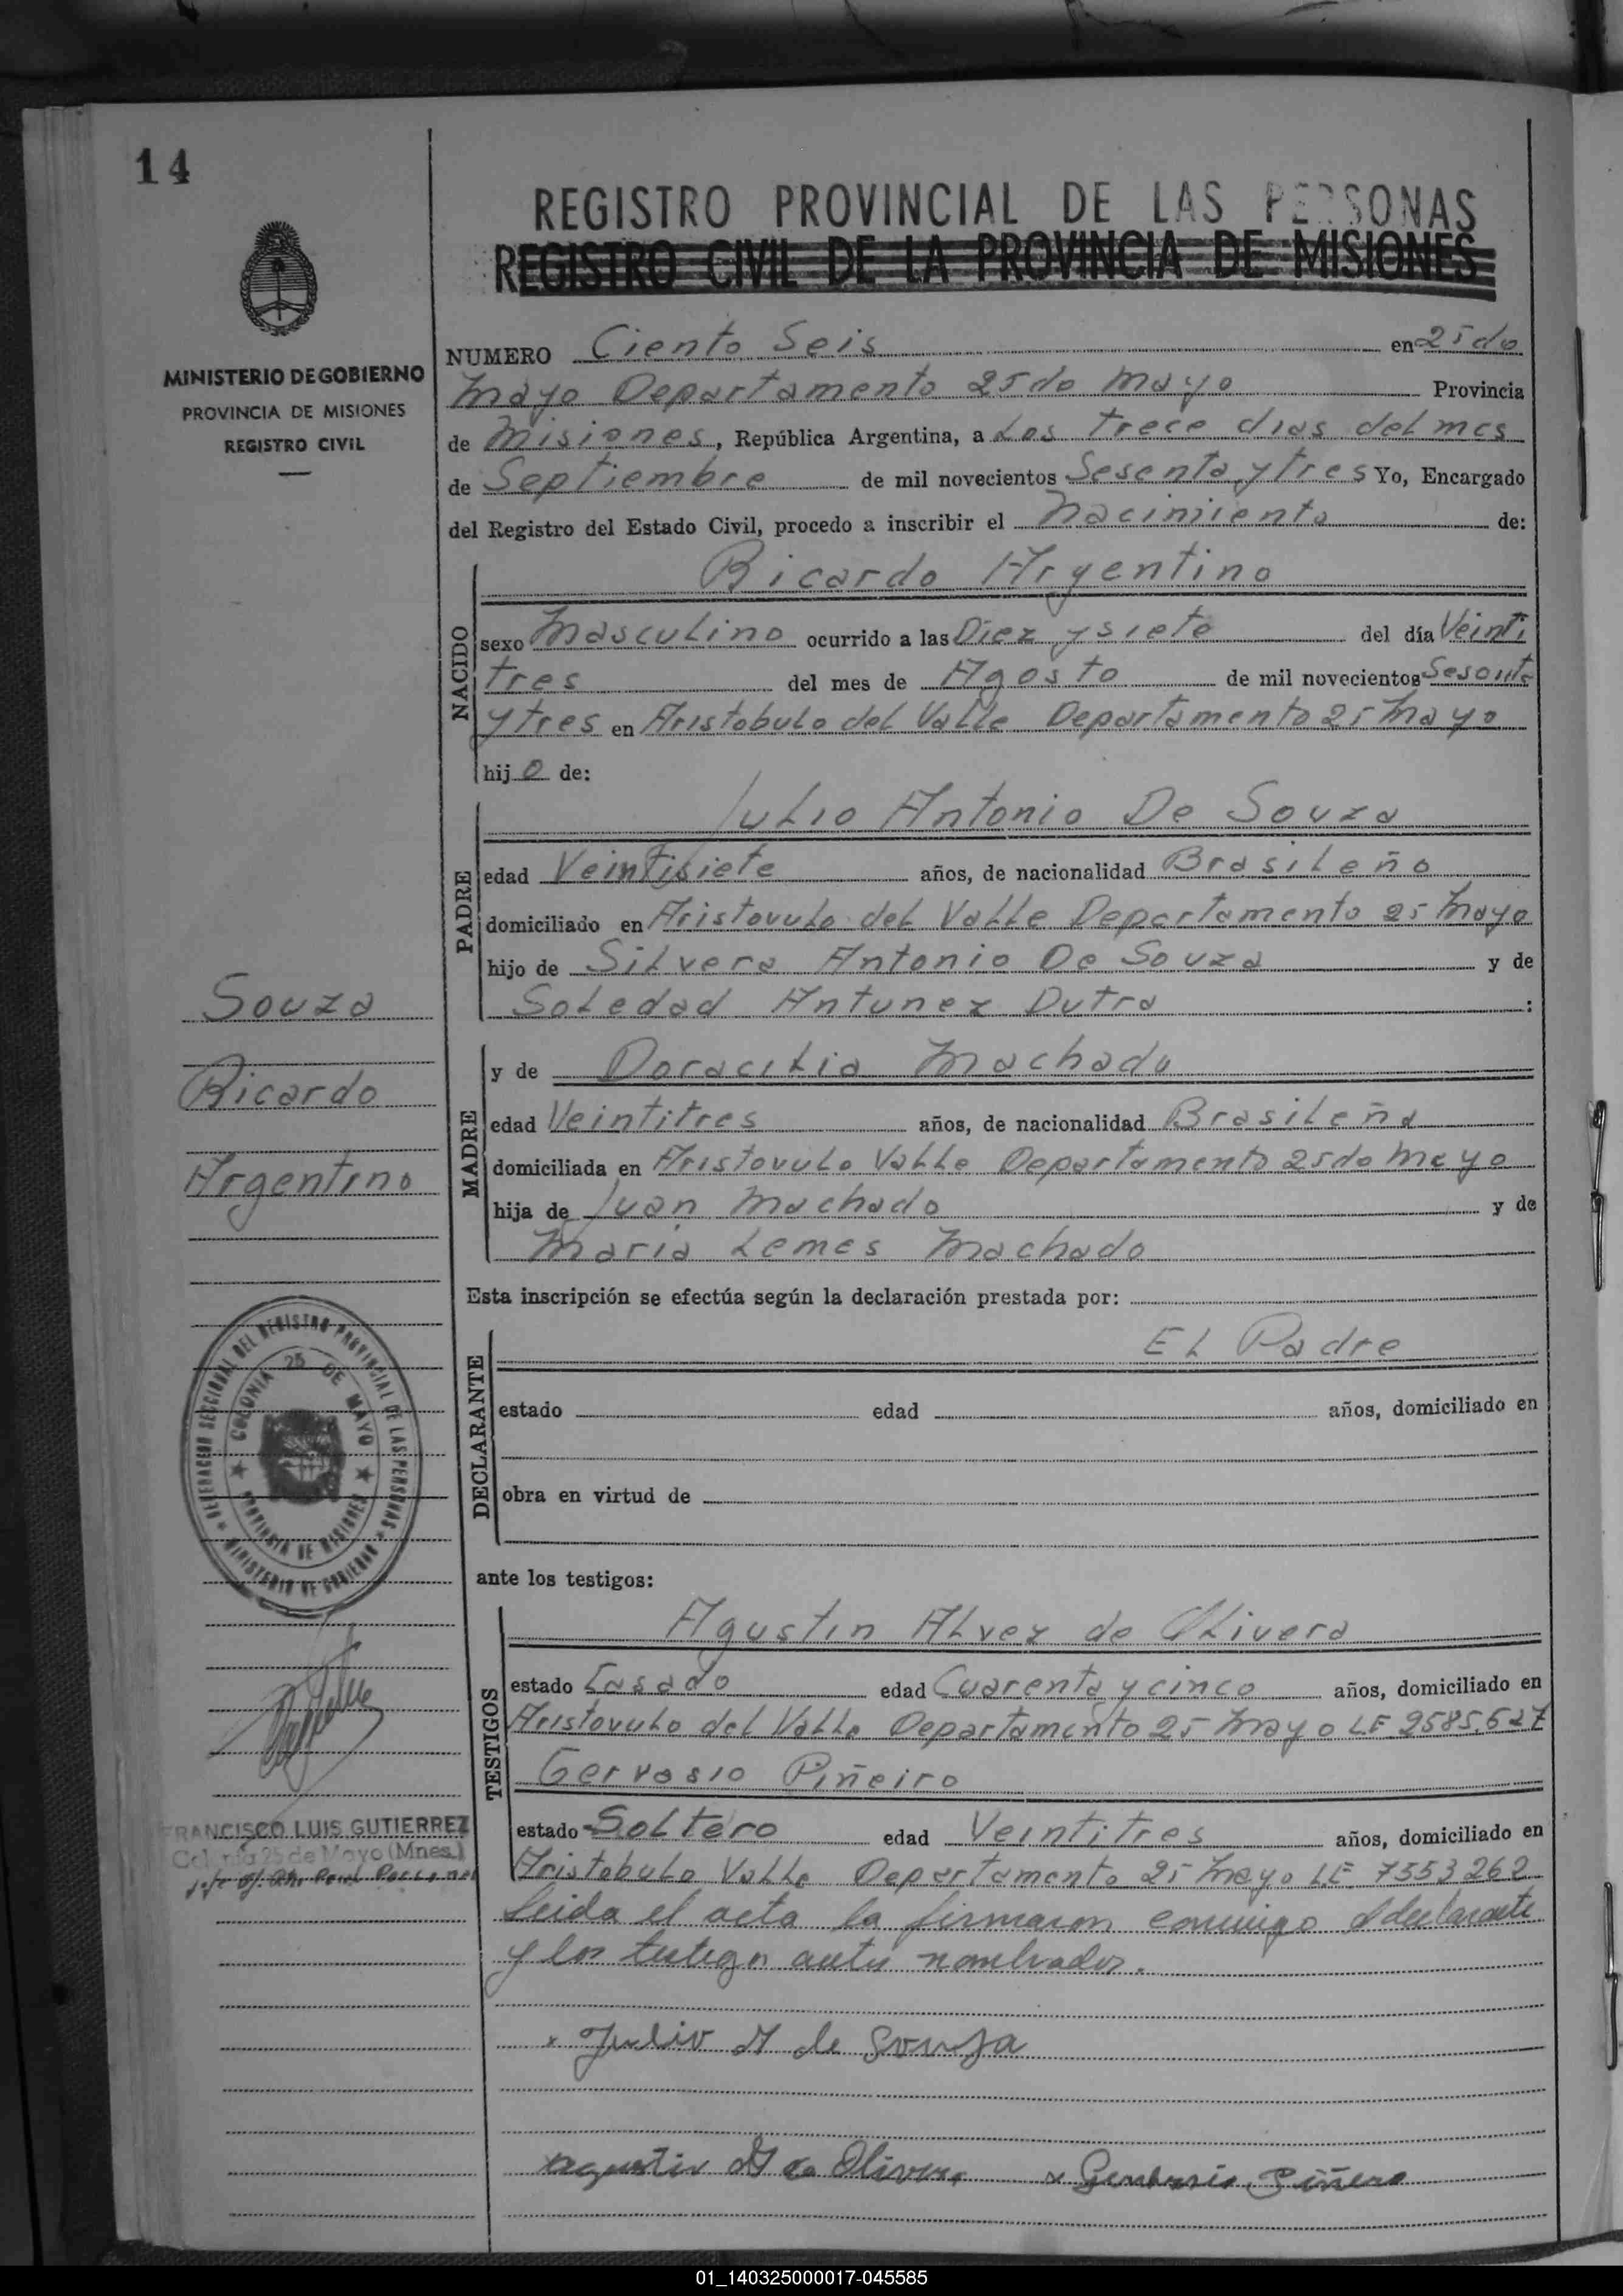 14
REGISTRO PROVINCIAL DE LAS PERSONAS
REGISTRO CIVIL DE LA PROVINCIA DE MISIONES
MINISTERIO DE GOBIERNO
PROVINCIA DE MISIONES
REGISTRO CIVIL
NUMERO Ciento Seis en 25 de
Mayo Departamento 25 de Mayo Provincia
de Misiones, República Argentina, a Los trece dias del mes
de Septiembre de mil novecientos Sesenta y tres Yo, Encargado
del Registro del Estado Civil, procedo a inscribir el Nacimiento de:
NACIDO
Ricardo Argentino
sexo Masculino ocurrido a las Diez y siete del día Veinti
tres del mes de Agosto de mil novecientos Sesenta
y tres en Aristobulo del Valle Departamento 25 Mayo
hijo de:
PADRE
Julio Antonio De Souza
edad Veintisiete años, de nacionalidad Brasileño
domiciliado en Aristovulo del Valle Departamento 25 Mayo
hijo de Silvera Antonio De Souza y de
Soledad Antunez Dutra :
MADRE
y de Doracilia Machado
edad Veintitres años, de nacionalidad Brasileña
domiciliada en Aristovulo Valle Departamento 25 de Mayo
hija de Juan Machado y de
Maria Lemes Machado
Souza
Ricardo
Argentino
Esta inscripción se efectúa según la declaración prestada por:
DECLARANTE
El Padre
estado edad años, domiciliado en
obra en virtud de
DELEGACION SECCIONAL DEL REGISTRO PROVINCIAL DE LAS PERSONAS
COLONIA 25 DE MAYO
PROVINCIA DE MISIONES
MINISTERIO DE GOBIERNO
ante los testigos:
TESTIGOS
Agustin Alvez de Olivera
estado Casado edad Cuarenta y cinco años, domiciliado en
Aristovulo del Valle Departamento 25 Mayo LE 2585.627
Gervasio Piñeiro
estado Soltero edad Veintitres años, domiciliado en
Aristobulo Valle Departamento 25 Mayo LE 7553262
FRANCISCO LUIS GUTIERREZ
Colonia 25 de Mayo (Mnes.)
Leida el acta la firmaron conmigo el declarante
y los testigos antes nombrados.
Julio A de Souza
agustin A de Olivera Gerbasio Piñero
01_140325000017-045585